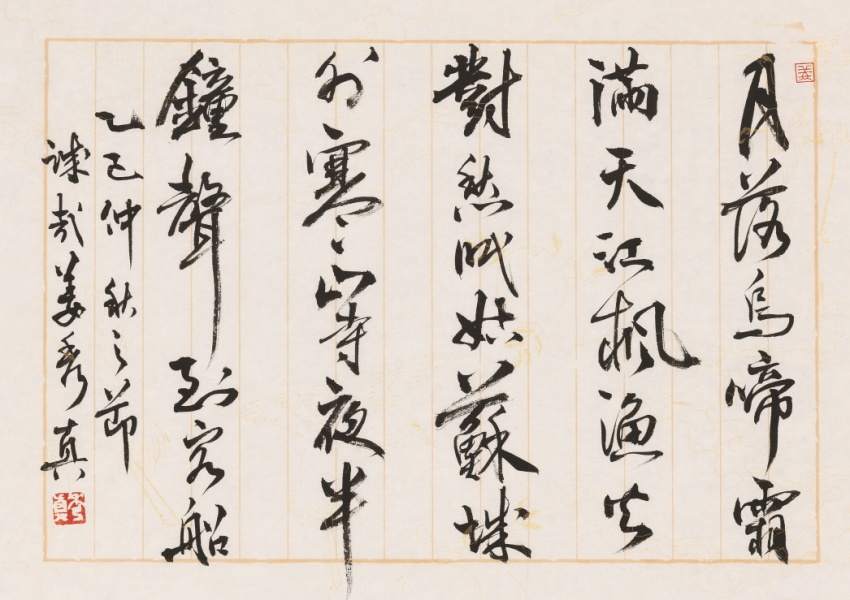 月落烏啼霜
滿天江楓漁火
對愁眠姑蘇城
外寒山寺夜半
鐘聲到客船
乙巳仲秋之節
誠哉姜秀真